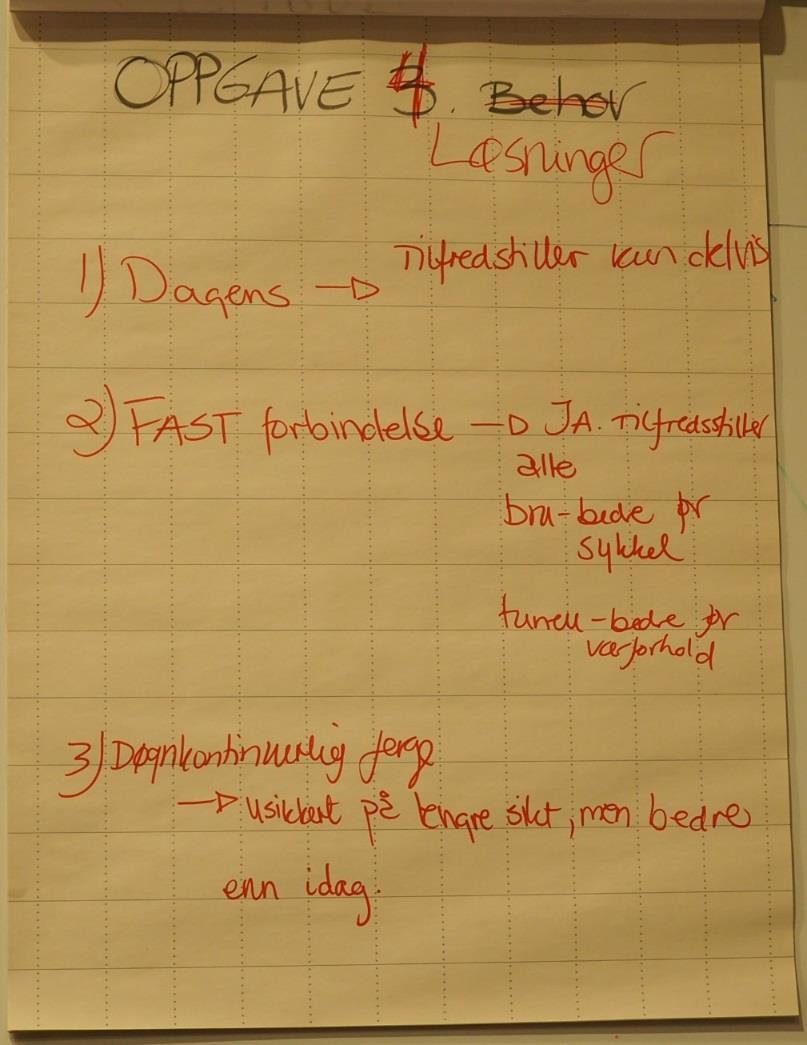 OPPGAVE 4. Behov
Løsninger
1) Dagens → Tilfredstiller kun delvis
2) FAST forbindelse → JA. Tilfredsstiller
alle
bru-bedre for
sykkel
tunell-bedre for
værforhold
3) Døgnkontinuerlig ferge
→ usikkert på lengre sikt, men bedre
enn idag.